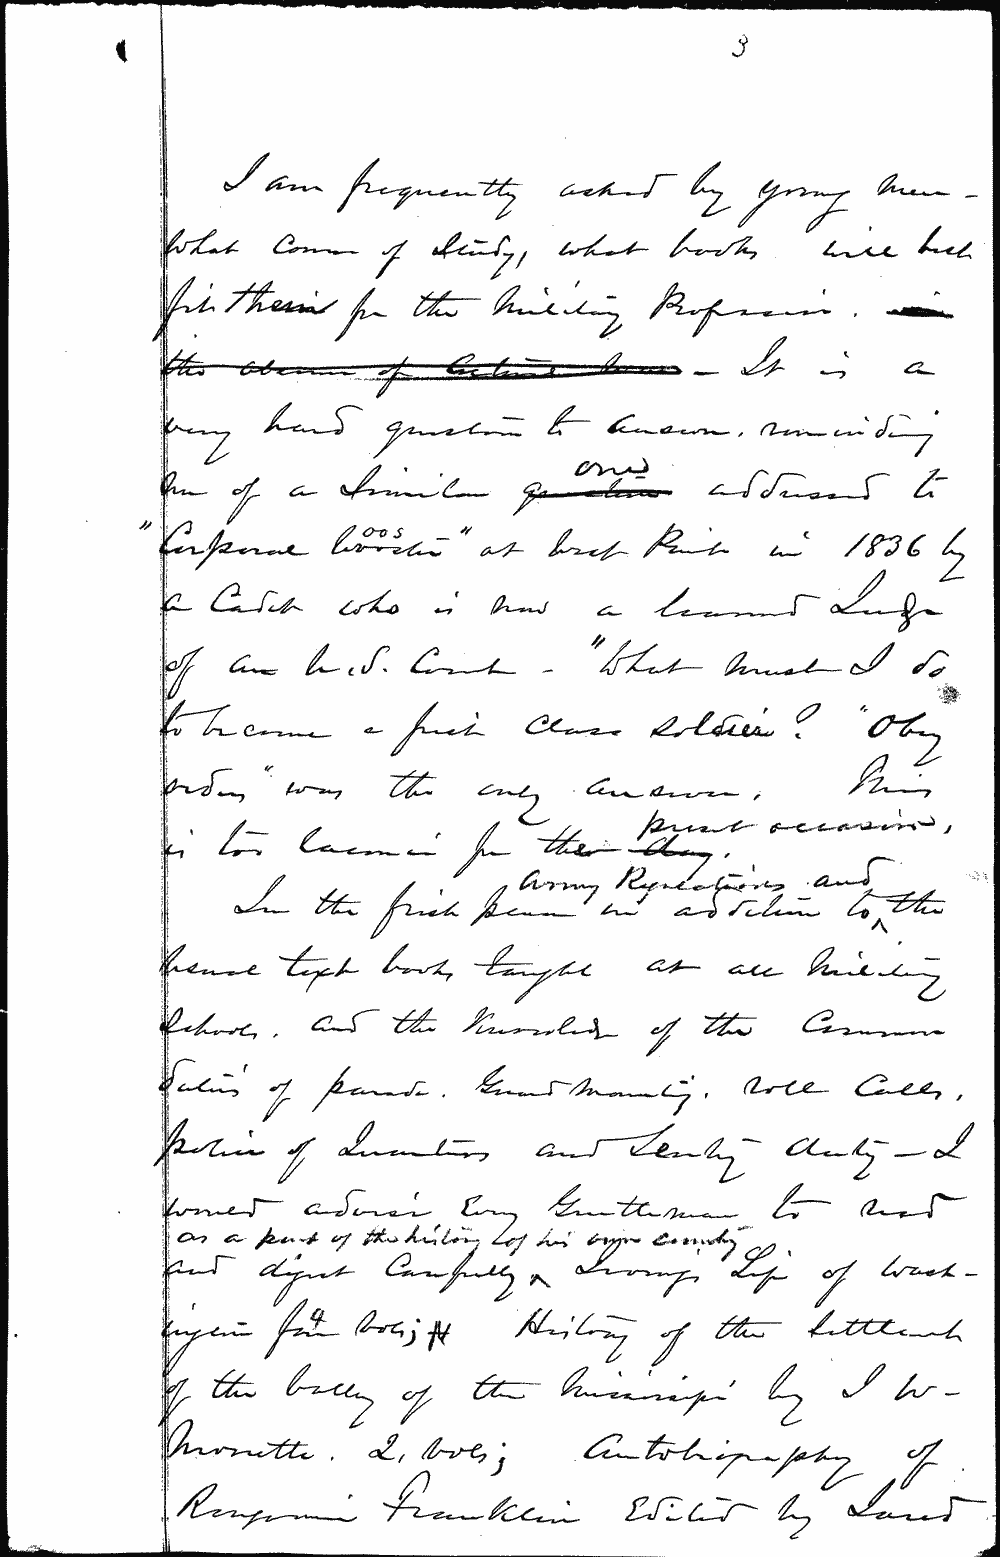 3
I am frequently asked by young men –
What course of Study, what books will best
fit them for the Military Profession. in
the absence of actual war – It is a
very hard question to answer. reminding
me of a similar question one addressed to
"Corporal Wooster" oos at West Point in 1836 by
a Cadet who is now a learned Judge
of an U.S. Court – "What must I do
to become a first class soldier? "Obey
orders" was the only answer. This
is too laconic for the day. present occasion.
In the first place in addition to Army Regulations and the
usual text books taught at all Military
Schools. and the Knowledge of the Common
duties of parade. Guard Mounting. roll Calls.
police of Quarters and Sentry duty – I
would advise Every Gentleman to read
as a part of the history of his own country
and digest Carefully Irvings Life of Wash-
ington four 4 vols; History of the Settlement
of the Valley of the Mississippi by J W –
Monette. 2. vols; Autobiography of
Benjamin Franklin Edited by Jared